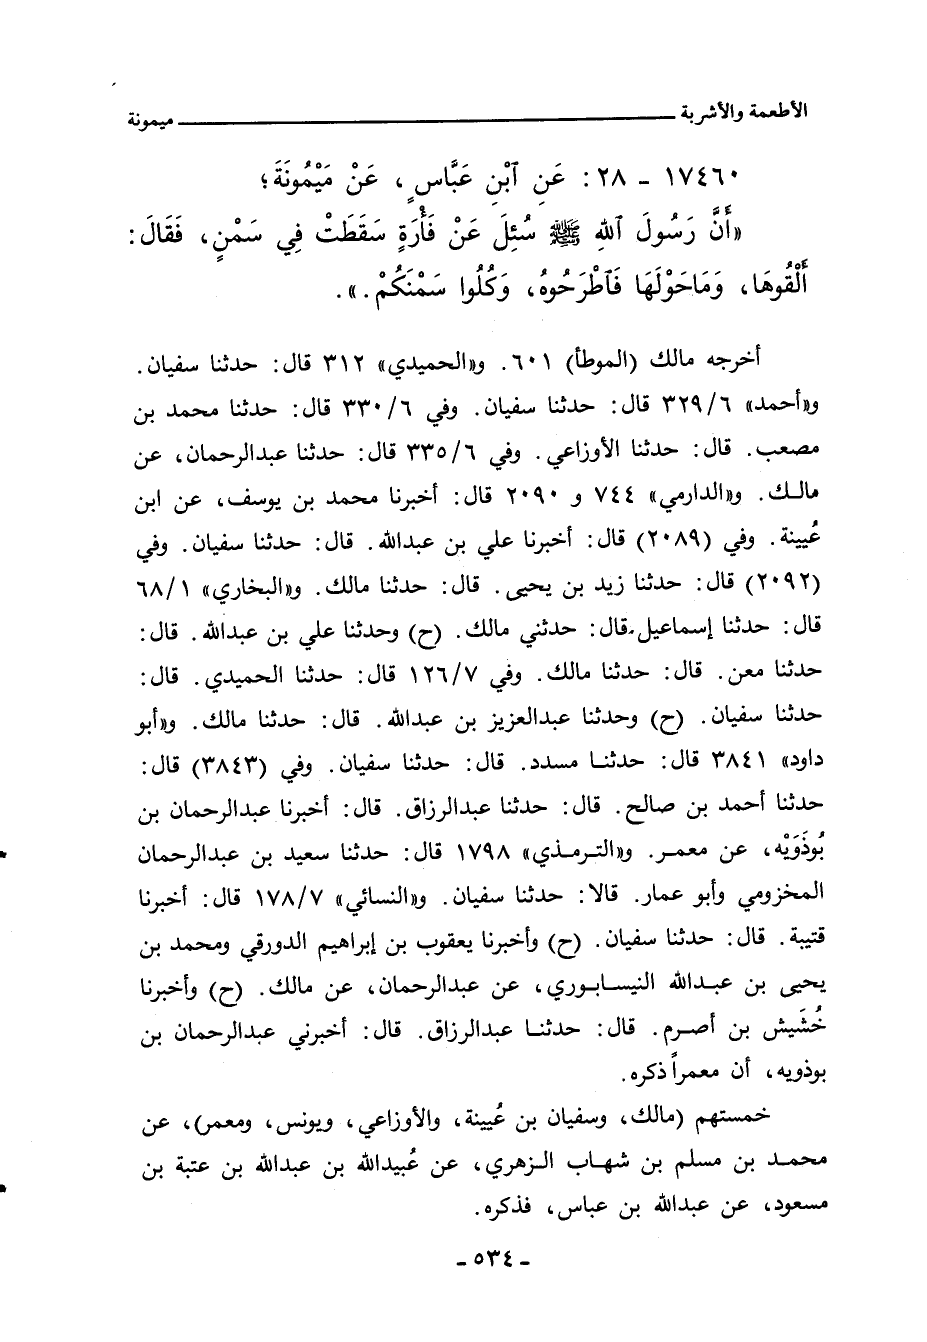 الأطعمة والأشربة ــــــــــ ميمونة
١٧٤٦٠ - ٢٨: عَنِ ٱبْنِ عَبَّاسٍ، عَنْ مَيْمُونَةَ؛
«أَنَّ رَسُولَ ٱللهِ ﷺ سُئِلَ عَنْ فَأْرَةٍ سَقَطَتْ فِي سَمْنٍ، فَقَالَ:
أَلْقُوهَا، وَمَاحَوْلَهَا فَٱطْرَحُوهُ، وَكُلُوا سَمْنَكُمْ.».
أخرجه مالك (الموطأ) ٦٠١. و«الحميدي» ٣١٢ قال: حدثنا سفيان.
و«أحمد» ٣٢٩/٦ قال: حدثنا سفيان. وفي ٣٣٠/٦ قال: حدثنا محمد بن
مصعب. قال: حدثنا الأوزاعي. وفي ٣٣٥/٦ قال: حدثنا عبدالرحمان، عن
مالك. و«الدارمي» ٧٤٤ و ٢٠٩٠ قال: أخبرنا محمد بن يوسف، عن ابن
عُيينة. وفي (٢٠٨٩) قال: أخبرنا علي بن عبدالله. قال: حدثنا سفيان. وفي
(٢٠٩٢) قال: حدثنا زيد بن يحيى. قال: حدثنا مالك. و«البخاري» ٦٨/١
قال: حدثنا إسماعيل.قال: حدثني مالك. (ح) وحدثنا علي بن عبدالله. قال:
حدثنا معن. قال: حدثنا مالك. وفي ١٢٦/٧ قال: حدثنا الحميدي. قال:
حدثنا سفيان. (ح) وحدثنا عبدالعزيز بن عبدالله. قال: حدثنا مالك. و«أبو
داود» ٣٨٤١ قال: حدثنا مسدد. قال: حدثنا سفيان. وفي (٣٨٤٣) قال:
حدثنا أحمد بن صالح. قال: حدثنا عبدالرزاق. قال: أخبرنا عبدالرحمان بن
بُوذَوَيْه، عن معمر. و«الترمذي» ١٧٩٨ قال: حدثنا سعيد بن عبدالرحمان
المخزومي وأبو عمار. قالا: حدثنا سفيان. و«النسائي» ١٧٨/٧ قال: أخبرنا
قتيبة. قال: حدثنا سفيان. (ح) وأخبرنا يعقوب بن إبراهيم الدورقي ومحمد بن
يحيى بن عبدالله النيسابوري، عن عبدالرحمان، عن مالك. (ح) وأخبرنا
خُشَيش بن أصرم. قال: حدثنا عبدالرزاق. قال: أخبرني عبدالرحمان بن
بوذويه، أن معمراً ذكره.
خمستهم (مالك، وسفيان بن عُيينة، والأوزاعي، ويونس، ومعمر)، عن
محمد بن مسلم بن شهاب الزهري، عن عُبيدالله بن عبدالله بن عتبة بن
مسعود، عن عبدالله بن عباس، فذكره.
- ٥٣٤ -